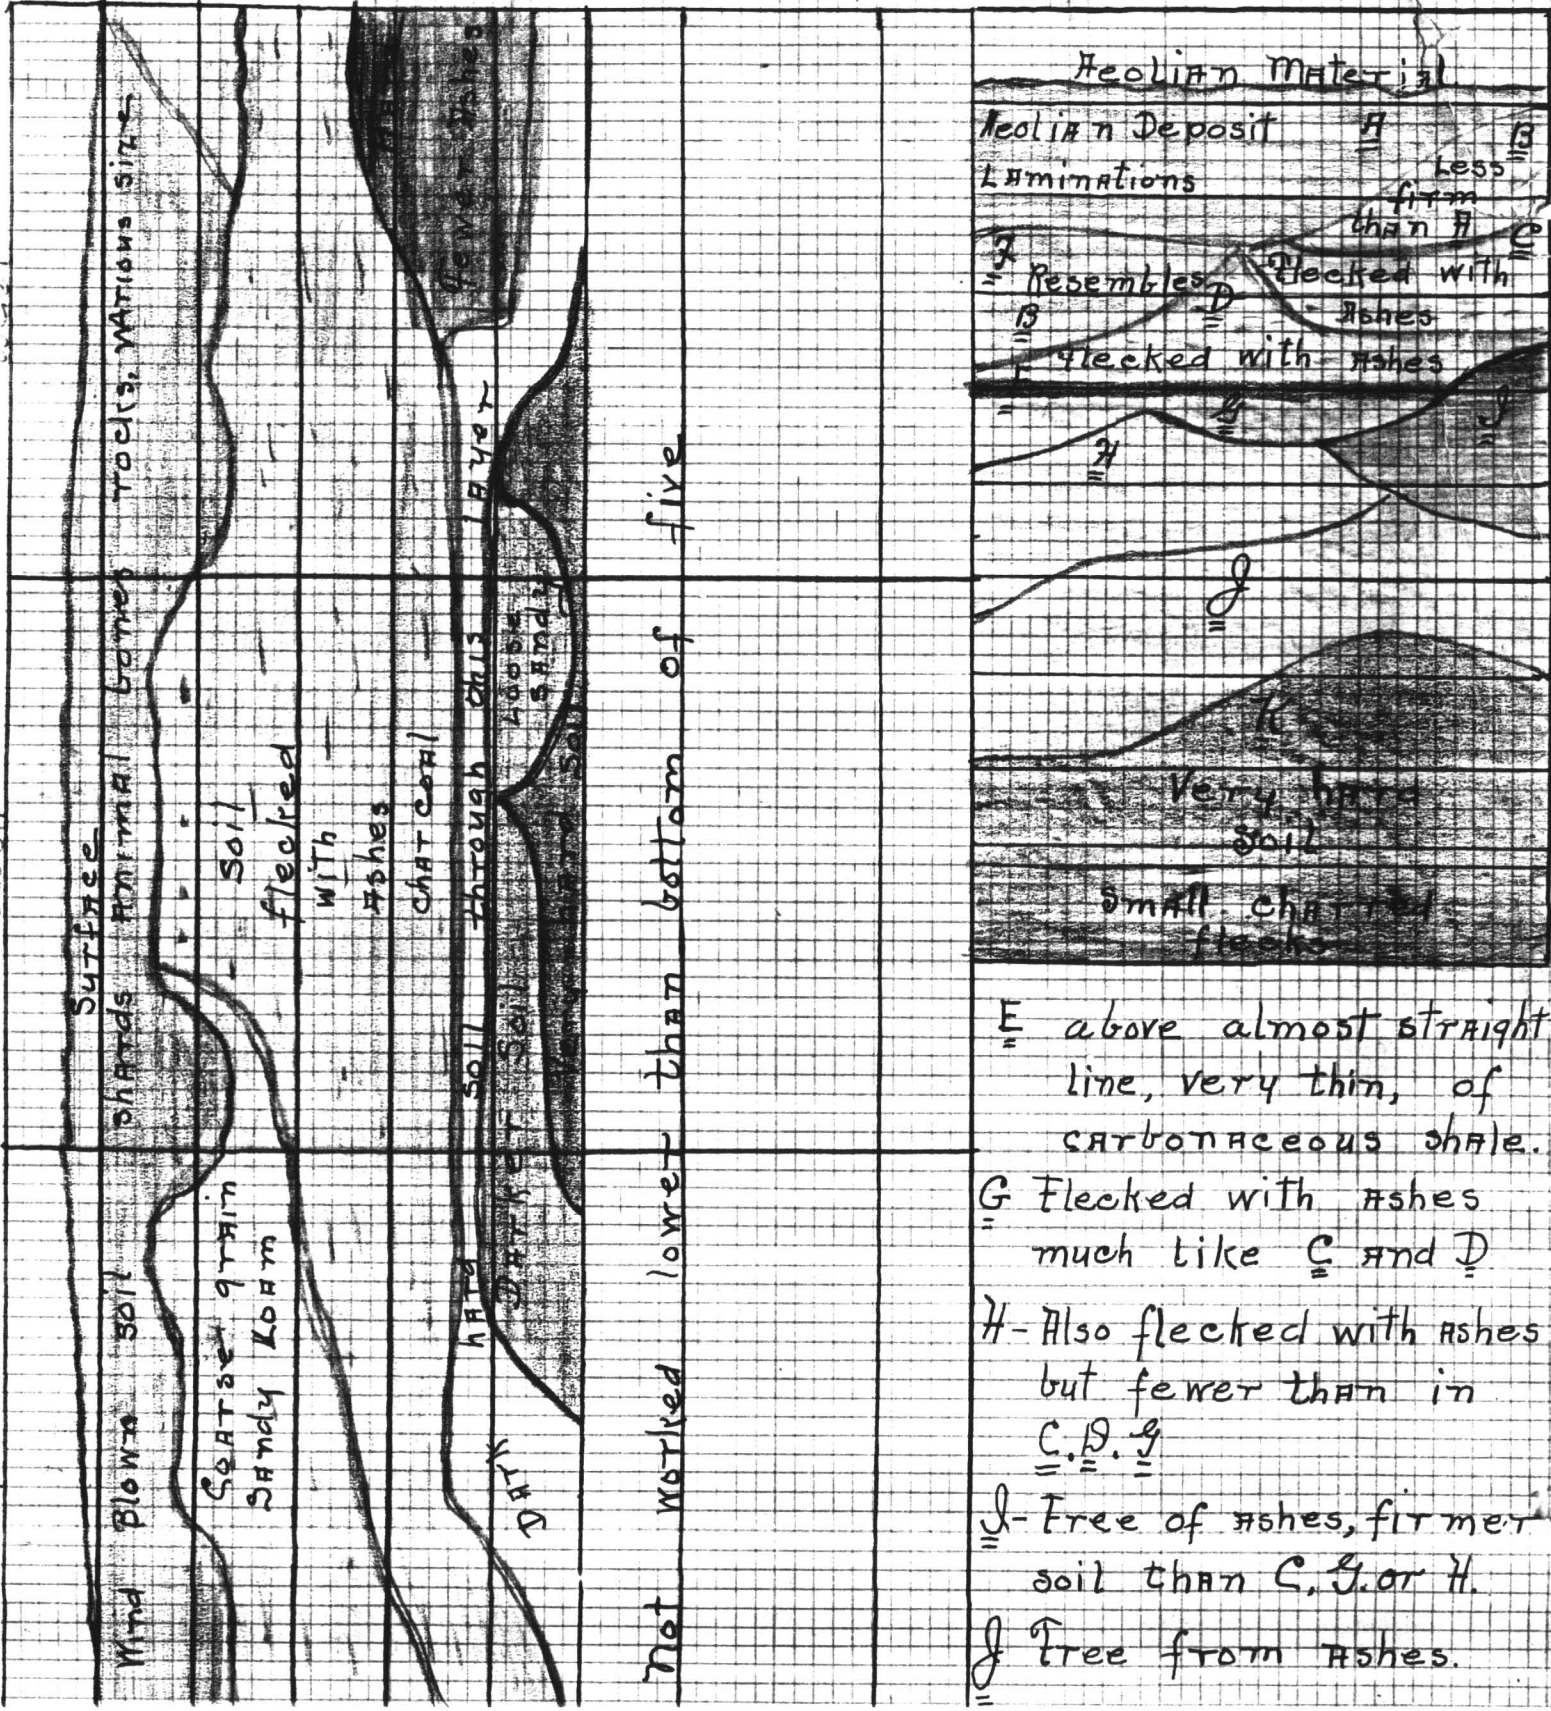 Surface
Wind Blown soil shards animal bones rocks, various size
Coarse grain
Sandy Loam
Soil
flecked
with
Ashes
charcoal
hard soil through this layer
Darker Soil
Loose
Sandy
Very hard Soil
Dark
fewer Ashes
Not worked lower than bottom of five
Aeolian Material
Aeolian Deposit A B
Laminations
Less
firm
than A
C
F
Resembles
B
D
Flecked with
Ashes
flecked with Ashes
E
G
I
H
J
K
Very hard
Soil
Small charred
flecks
E above almost straight
line, very thin, of
carbonaceous shale.
G Flecked with Ashes
much like C and D
H- Also flecked with Ashes
but fewer than in
C. D. G
I- Free of Ashes, firmer
soil than C, G. or H.
J Free from Ashes.